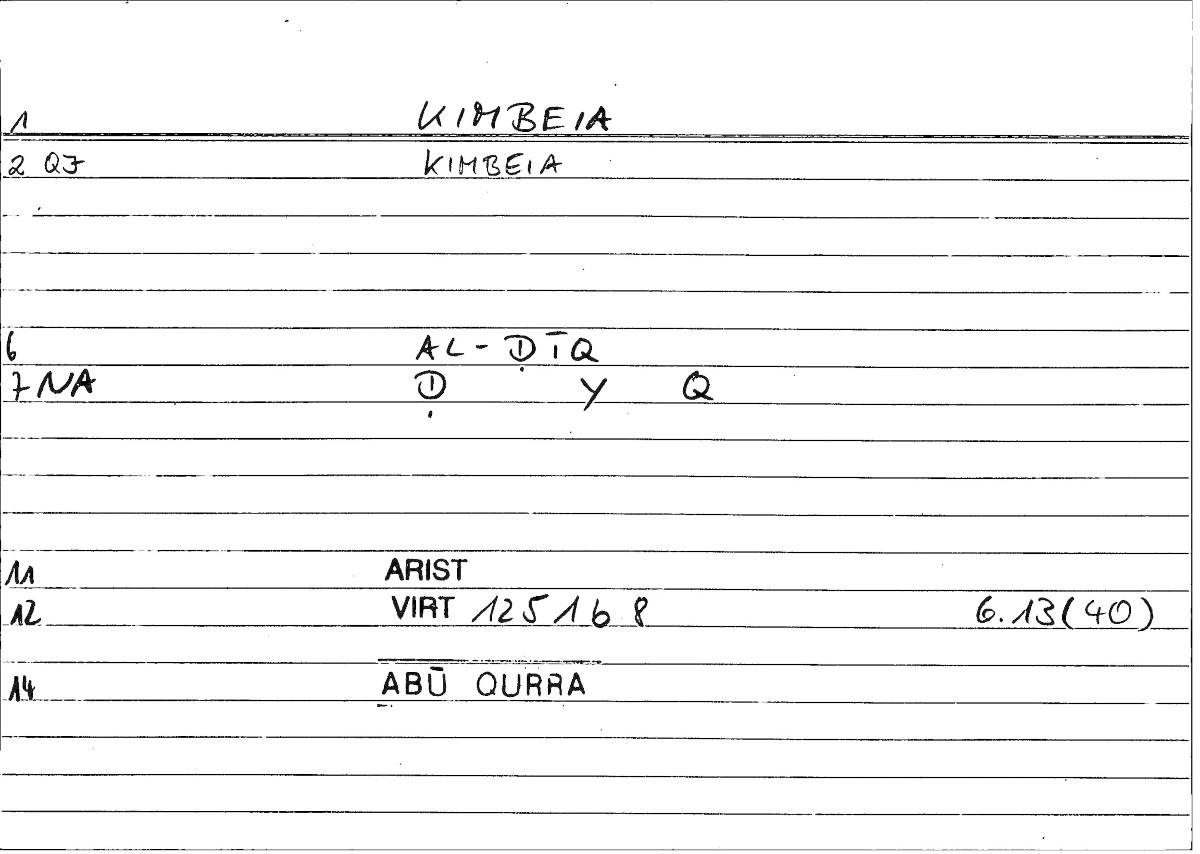 1 KIMBEIA
2 QJ KIMBEIA
6 AL-ḌĪQ
7 NA Ḍ Y Q
11 ARIST
12 VIRT 1251b 8 6.13(40)
14 ABŪ QURRA